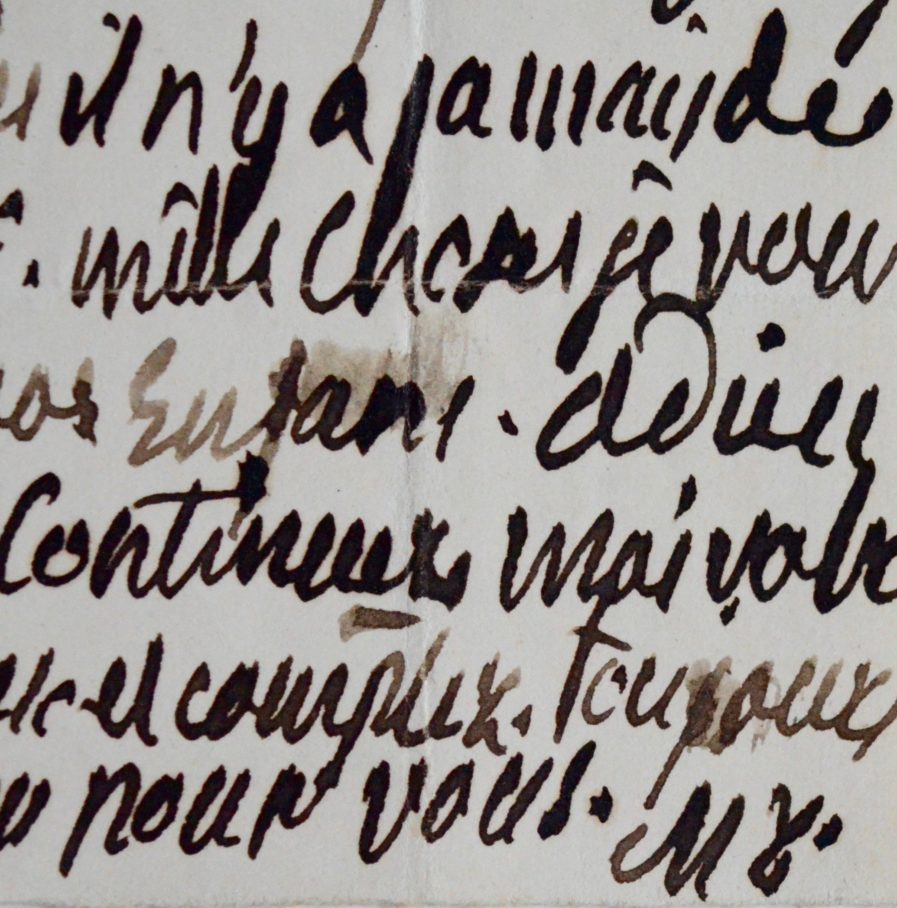 il n'y a jamais de
. mille choses je vou
vos Enfans . adieu
Continuez moi votre
et comptez. Toujours
pour vous. M